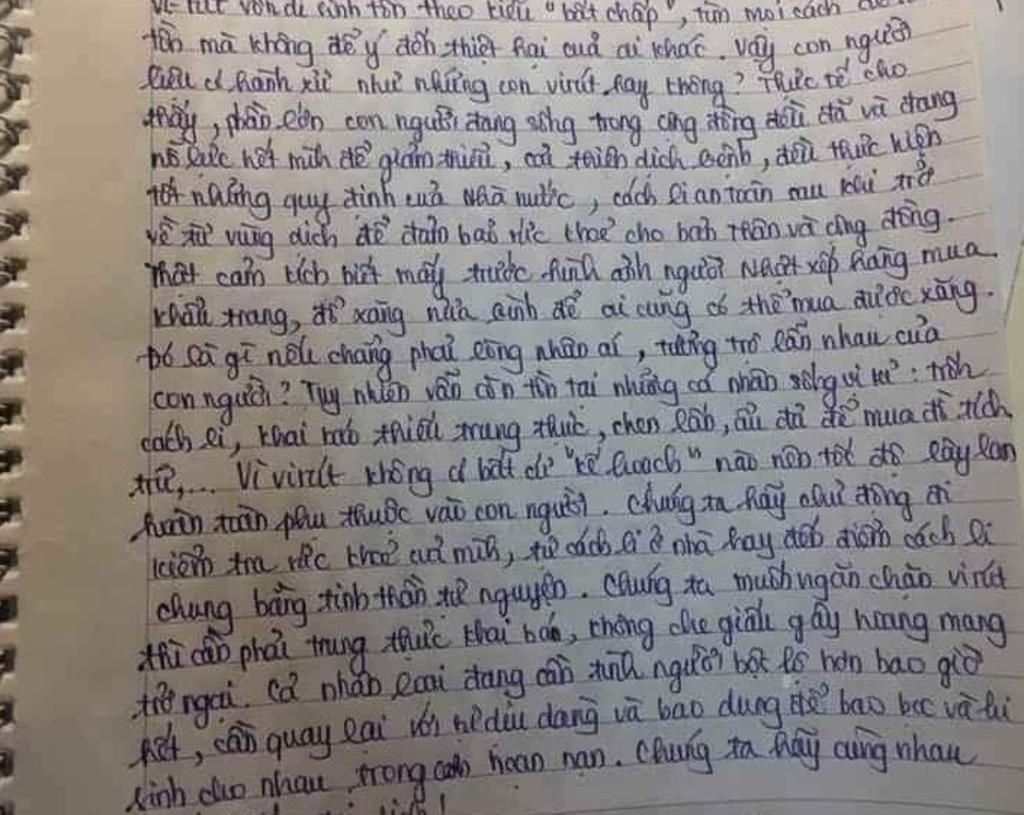 Vi-rút vốn dĩ sinh tồn theo kiểu "bất chấp", tìm mọi cách để
tồn mà không để ý đến thiệt hại của ai khác. Vậy con người
liệu có hành xử như những con virút hay không? Thực tế cho
thấy, phần lớn con người đang sống trong cộng đồng đều đã và đang
nỗ lực hết mình để giảm thiểu, cải thiện dịch bệnh, đều thực hiện
tốt những quy định của Nhà nước, cách li an toàn sau khi trở
về từ vùng dịch để đảm bảo sức khoẻ cho bản thân và cộng đồng.
Thật cảm kích biết mấy trước hình ảnh người Nhật xếp hàng mua
khẩu trang, đổ xăng nửa bình để ai cũng có thể mua được xăng.
Đó là gì nếu chẳng phải lòng nhân ái, tương trợ lẫn nhau của
con người? Tuy nhiên vẫn còn tồn tại những cá nhân sống vị kỉ: trốn
cách li, khai báo thiếu trung thực, chen lấn, ẩu đả để mua đồ tích
trữ,... Vì virút không có bất cứ "kế hoạch" nào nên tốc độ lây lan
hoàn toàn phụ thuộc vào con người. Chúng ta hãy chủ động đi
kiểm tra sức khoẻ của mình, tự cách li ở nhà hay đến điểm cách li
chung bằng tinh thần tự nguyện. Chúng ta muốn ngăn chặn virút
thì cần phải trung thực khai báo, không che giấu gây hoang mang
trở ngại. Cả nhân loại đang cần tình người bộc lộ hơn bao giờ
hết, cần quay lại với sự dịu dàng và bao dung để bao bọc và hi
sinh cho nhau trong cơn hoạn nạn. Chúng ta hãy cùng nhau